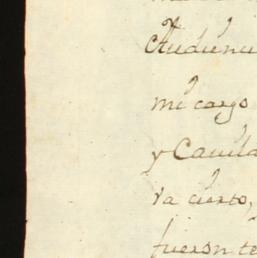 Audienci
mi cargo
y Cavild
va cierto,
fueron te